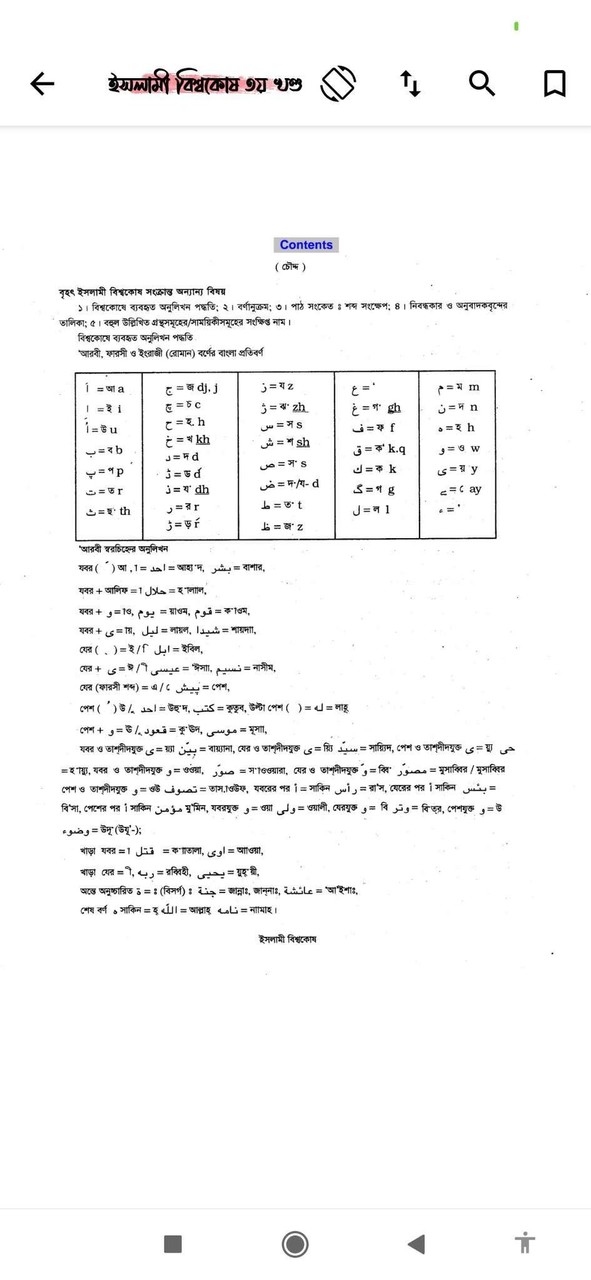 ইসলামী বিশ্বকোষ ৩য় খণ্ড
Contents
( চৌদ্দ )
বৃহৎ ইসলামী বিশ্বকোষ সংক্রান্ত অন্যান্য বিষয়
১। বিশ্বকোষে ব্যবহৃত অনুলিখন পদ্ধতি; ২। বর্ণানুক্রম; ৩। পাঠ সংকেত ঃ শব্দ সংক্ষেপ; ৪। নিবন্ধকার ও অনুবাদকবৃন্দের
তালিকা; ৫। বহুল উল্লিখিত গ্রন্থসমূহের/সাময়িকীসমূহের সংক্ষিপ্ত নাম।
বিশ্বকোষে ব্যবহৃত অনুলিখন পদ্ধতি
'আরবী, ফারসী ও ইংরাজী (রোমান) বর্ণের বাংলা প্রতিবর্ণ
أ = আ a
ا = ই i
أ = উ u
ب = ব b
پ = প p
ت = ত r
ث = ছ· th
ج = জ dj, j
چ = চ c
ح = হ. h
خ = খ kh
د = দ d
ڈ = ড d
ذ = য· dh
ر = র r
ڑ = ড় ŕ
ز = য z
ژ = ঝ· zh
س = স s
ش = শ sh
ص = স· s
ض = দ·/য- d
ط = ত· t
ظ = জ· z
ع = '
غ = গ· gh
ف = ফ f
ق = ক' k.q
ك = ক k
گ = গ g
ل = ল l
م = ম m
ن = ন n
ه = হ h
و = ও w
ى = য় y
ے = ে ay
ء = '
'আরবী স্বরচিহ্নের অনুলিখন
যবর ( َ ) আ ,া = احد = আহ'দ, بشر = বাশার,
যবর + আলিফ =া حلال = হ·ালাল,
যবর + و = াও, يوم = য়াওম, قوم = ক·াওম,
যবর + ى = ায়, ليل = লায়ল, شيدا = শায়দাা,
যের ( ِ ) = ই/ি ابل = ইবিল,
যের + ى = ঈ/ী عيسى = 'ঈসাা, نسيم = নাসীম,
যের (ফারসী শব্দ) = এ/ে پيش = পেশ,
পেশ ( ُ ) উ/ু احد = উহু·দ, كتب = কুতুব, উল্টা পেশ ( ) = له = লাহূ
পেশ + و = ঊ/ূ قعود = কু·ঊদ, موسى = মূসাা,
যবর ও তাশ্দীদযুক্ত ى = য়্যা بيّن = বায়্যানা, যের ও তাশ্দীদযুক্ত ى = য়্যি سيّد = সায়্যিদ, পেশ ও তাশ্দীদযুক্ত ى = য়্যু حى
= হ·ায়্যু, যবর ও তাশ্দীদযুক্ত و = ওওয়া, صوّر = স·াওওয়ারা, যের ও তাশ্দীদযুক্ত و = ব্বি مصوّر = মুসাব্বির / মুসাব্বির
পেশ ও তাশ্দীদযুক্ত و = ওউ تصوف = তাস.াওউফ, যবরের পর أ = সাকিন رأس = রা'স, যেরের পর أ সাকিন بئس =
বি'সা, পেশের পর أ সাকিন مؤمن মু'মিন, যবরযুক্ত و = ওয়া ولى = ওয়ালী, যেরযুক্ত و = বি وتر = বি'ত্‌র, পেশযুক্ত و = উ
وضوء = উদূ·(উযূ'-);
খাড়া যবর =া قتل = ক·াতালা, اوى = আাওয়া,
খাড়া যের = ী, ربه = রব্বিহী, يحيى = য়ুহ্·য়ী,
অন্তে অনুচ্চারিত ة = ঃ (বিসর্গ) ঃ جنة = জান্নাঃ, জান্‌নাঃ, عائشة = 'আ'ইশাঃ,
শেষ বর্ণ ه সাকিন = হ্ الله = আল্লাহ্ نامه = নাামাহ।
ইসলামী বিশ্বকোষ